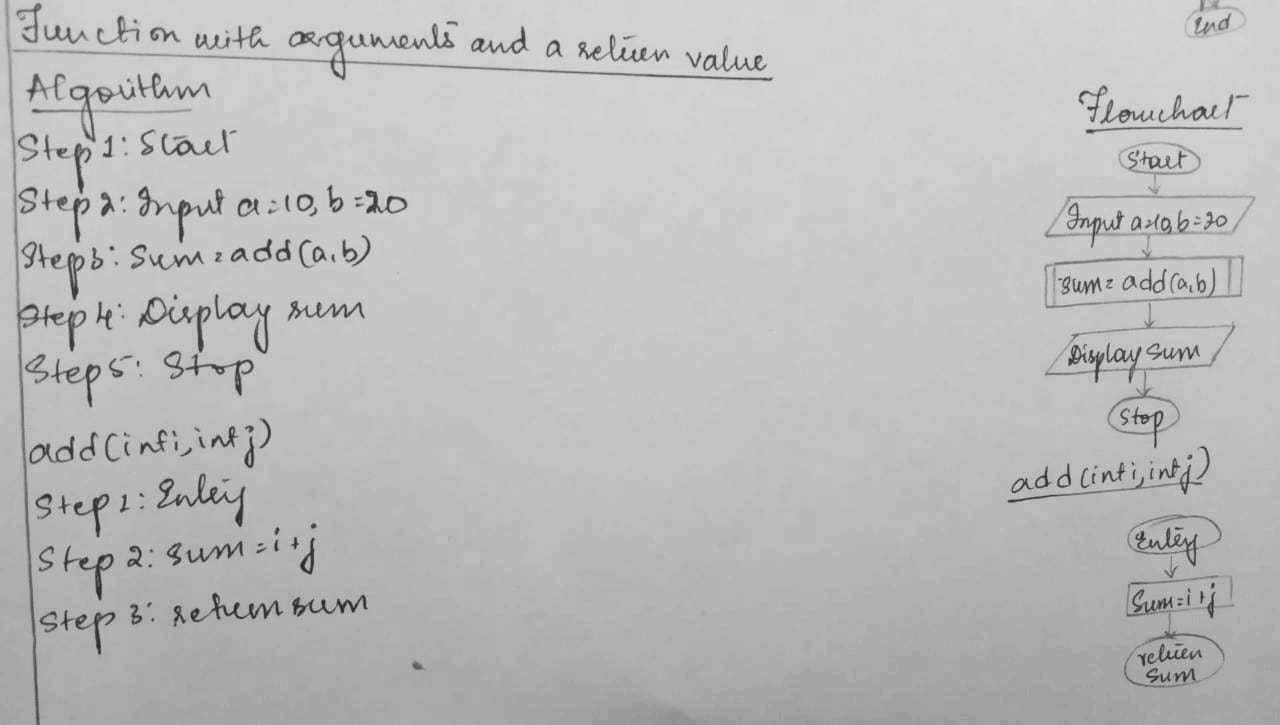 End
Function with arguments and a return value
Algorithm
Step 1: Start
Step 2: Input a=10, b=20
Step 3: Sum = add(a,b)
Step 4: Display sum
Step 5: Stop
add(int i, int j)
Step 1: Entry
Step 2: sum = i+j
Step 3: return sum
Flowchart
Start
Input a=10, b=20
sum = add(a,b)
Display sum
Stop
add(int i, int j)
Entry
Sum = i+j
return
sum